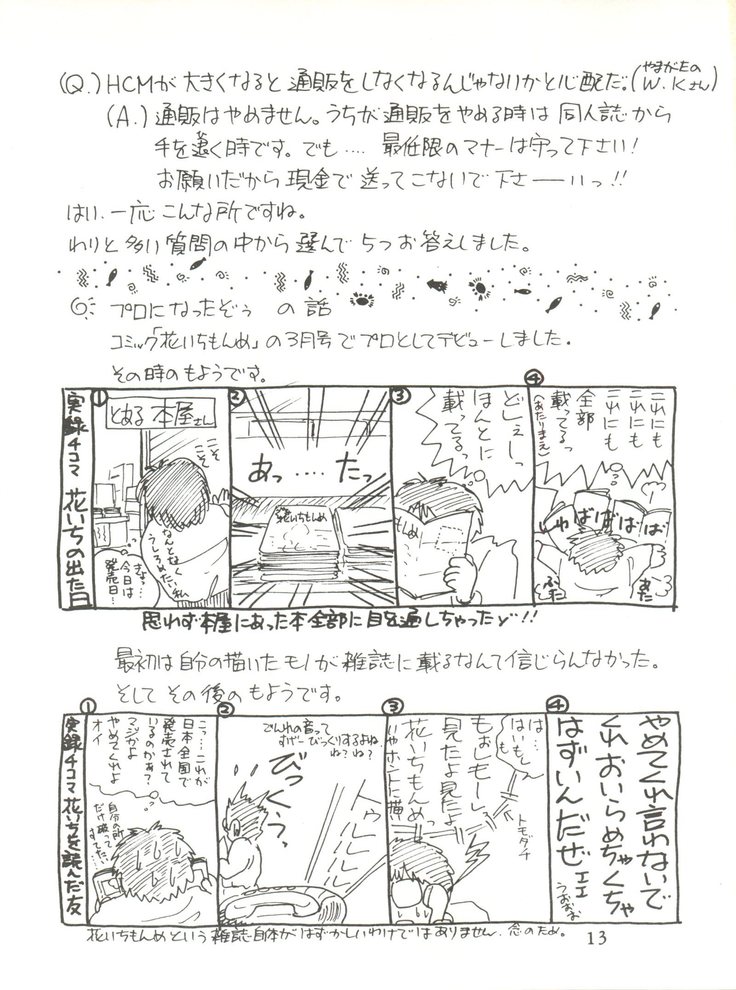 (Q.) HCMが大きくなると通販をしなくなるんじゃないかと心配だ。(やまがたのW.Kさん)
(A.) 通販はやめません。うちが通販をやめる時は同人誌から
手を退く時です。でも…. 最低限のマナーは守って下さい!
お願いだから現金で送ってこないで下さ――いっ!!
はい. 一応こんな所ですね。
わりと多い質問の中から選んで5つお答えしました。
プロになったぞぅ の話
コミック「花いちもんめ」の3月号でプロとしてデビューしました.
その時のもようです。
実録4コマ 花いちの出た日
①
とある本屋さん
こそ
こそ
なんとなく
うしろめたい私
さよっ…
今日は
発売日…
②
あっ….たっ
花いちもんめ
③
どしぇーっ
ほんとに
載ってるっ
④
これにも
これにも
これにも
全部
載ってるっ
(あたりまえ)
ばばばば
あた
ふた
思わず本屋にあった本全部に目を通しちゃったゾ!!
最初は自分の描いたモノが雑誌に載るなんて信じらんなかった。
そして その後のもようです。
実録4コマ 花いちを読んだ友
①
こっ…これが
日本全国で
発売されて
いるのかぁ?
マジかよ
やめてくれよ
オイ
自分の所
だけ破って
すてた…
②
でんわの音って
すげーびっくりするよね
ね?ね?
びっくぅっ
トゥルルルル
③
は…
はいもしもし
もぉしもーし
見たよ見たよ
花いちもんめっ
いやホントに描い
トモダチ
④
やめてくれ言わないで
くれおいらめちゃくちゃ
はずいんだぜェェ
うおぉお
花いちもんめという雑誌自体がはずかしいわけではありません. 念のため。
13